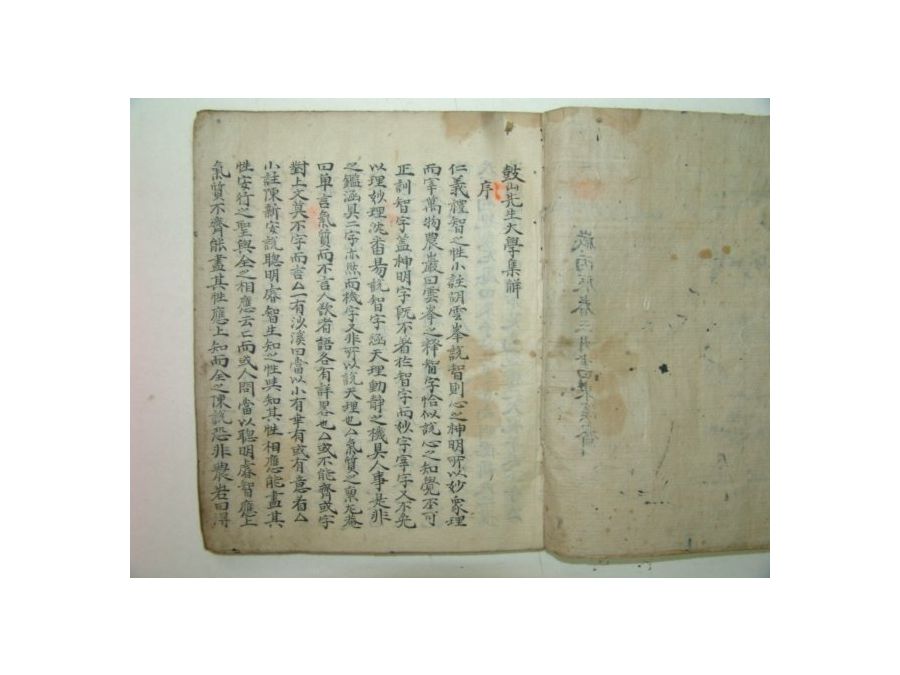 鼓山先生大學集解
序
仁義禮智之性小註胡雲峯說智則心之神明所以妙衆理
而宰萬物農巖曰雲峯之釋智字恰似說心之知覺不可
正訓智字盖神明字旣不着於智字而妙字宰字又不免
以理妙理沈番昜說智字涵天理動静之機具人事是非
之鑑涵具二字亦然而機字又非所以說天理也△氣質之稟尤菴
曰單言氣質而不言人欲者語各有詳畧也△或不能齊或字
對上文莫不字而言△一有沙溪曰當以小有幸有或有意看△
小註陳新安說聰明睿智生知之性與知其性相應能盡其
性安行之聖與全之相應云云而或人問當以聰明睿智應上
氣質不齊能盡其性應上知而全之陳說恐非農岩曰得
歲丙辰春三月